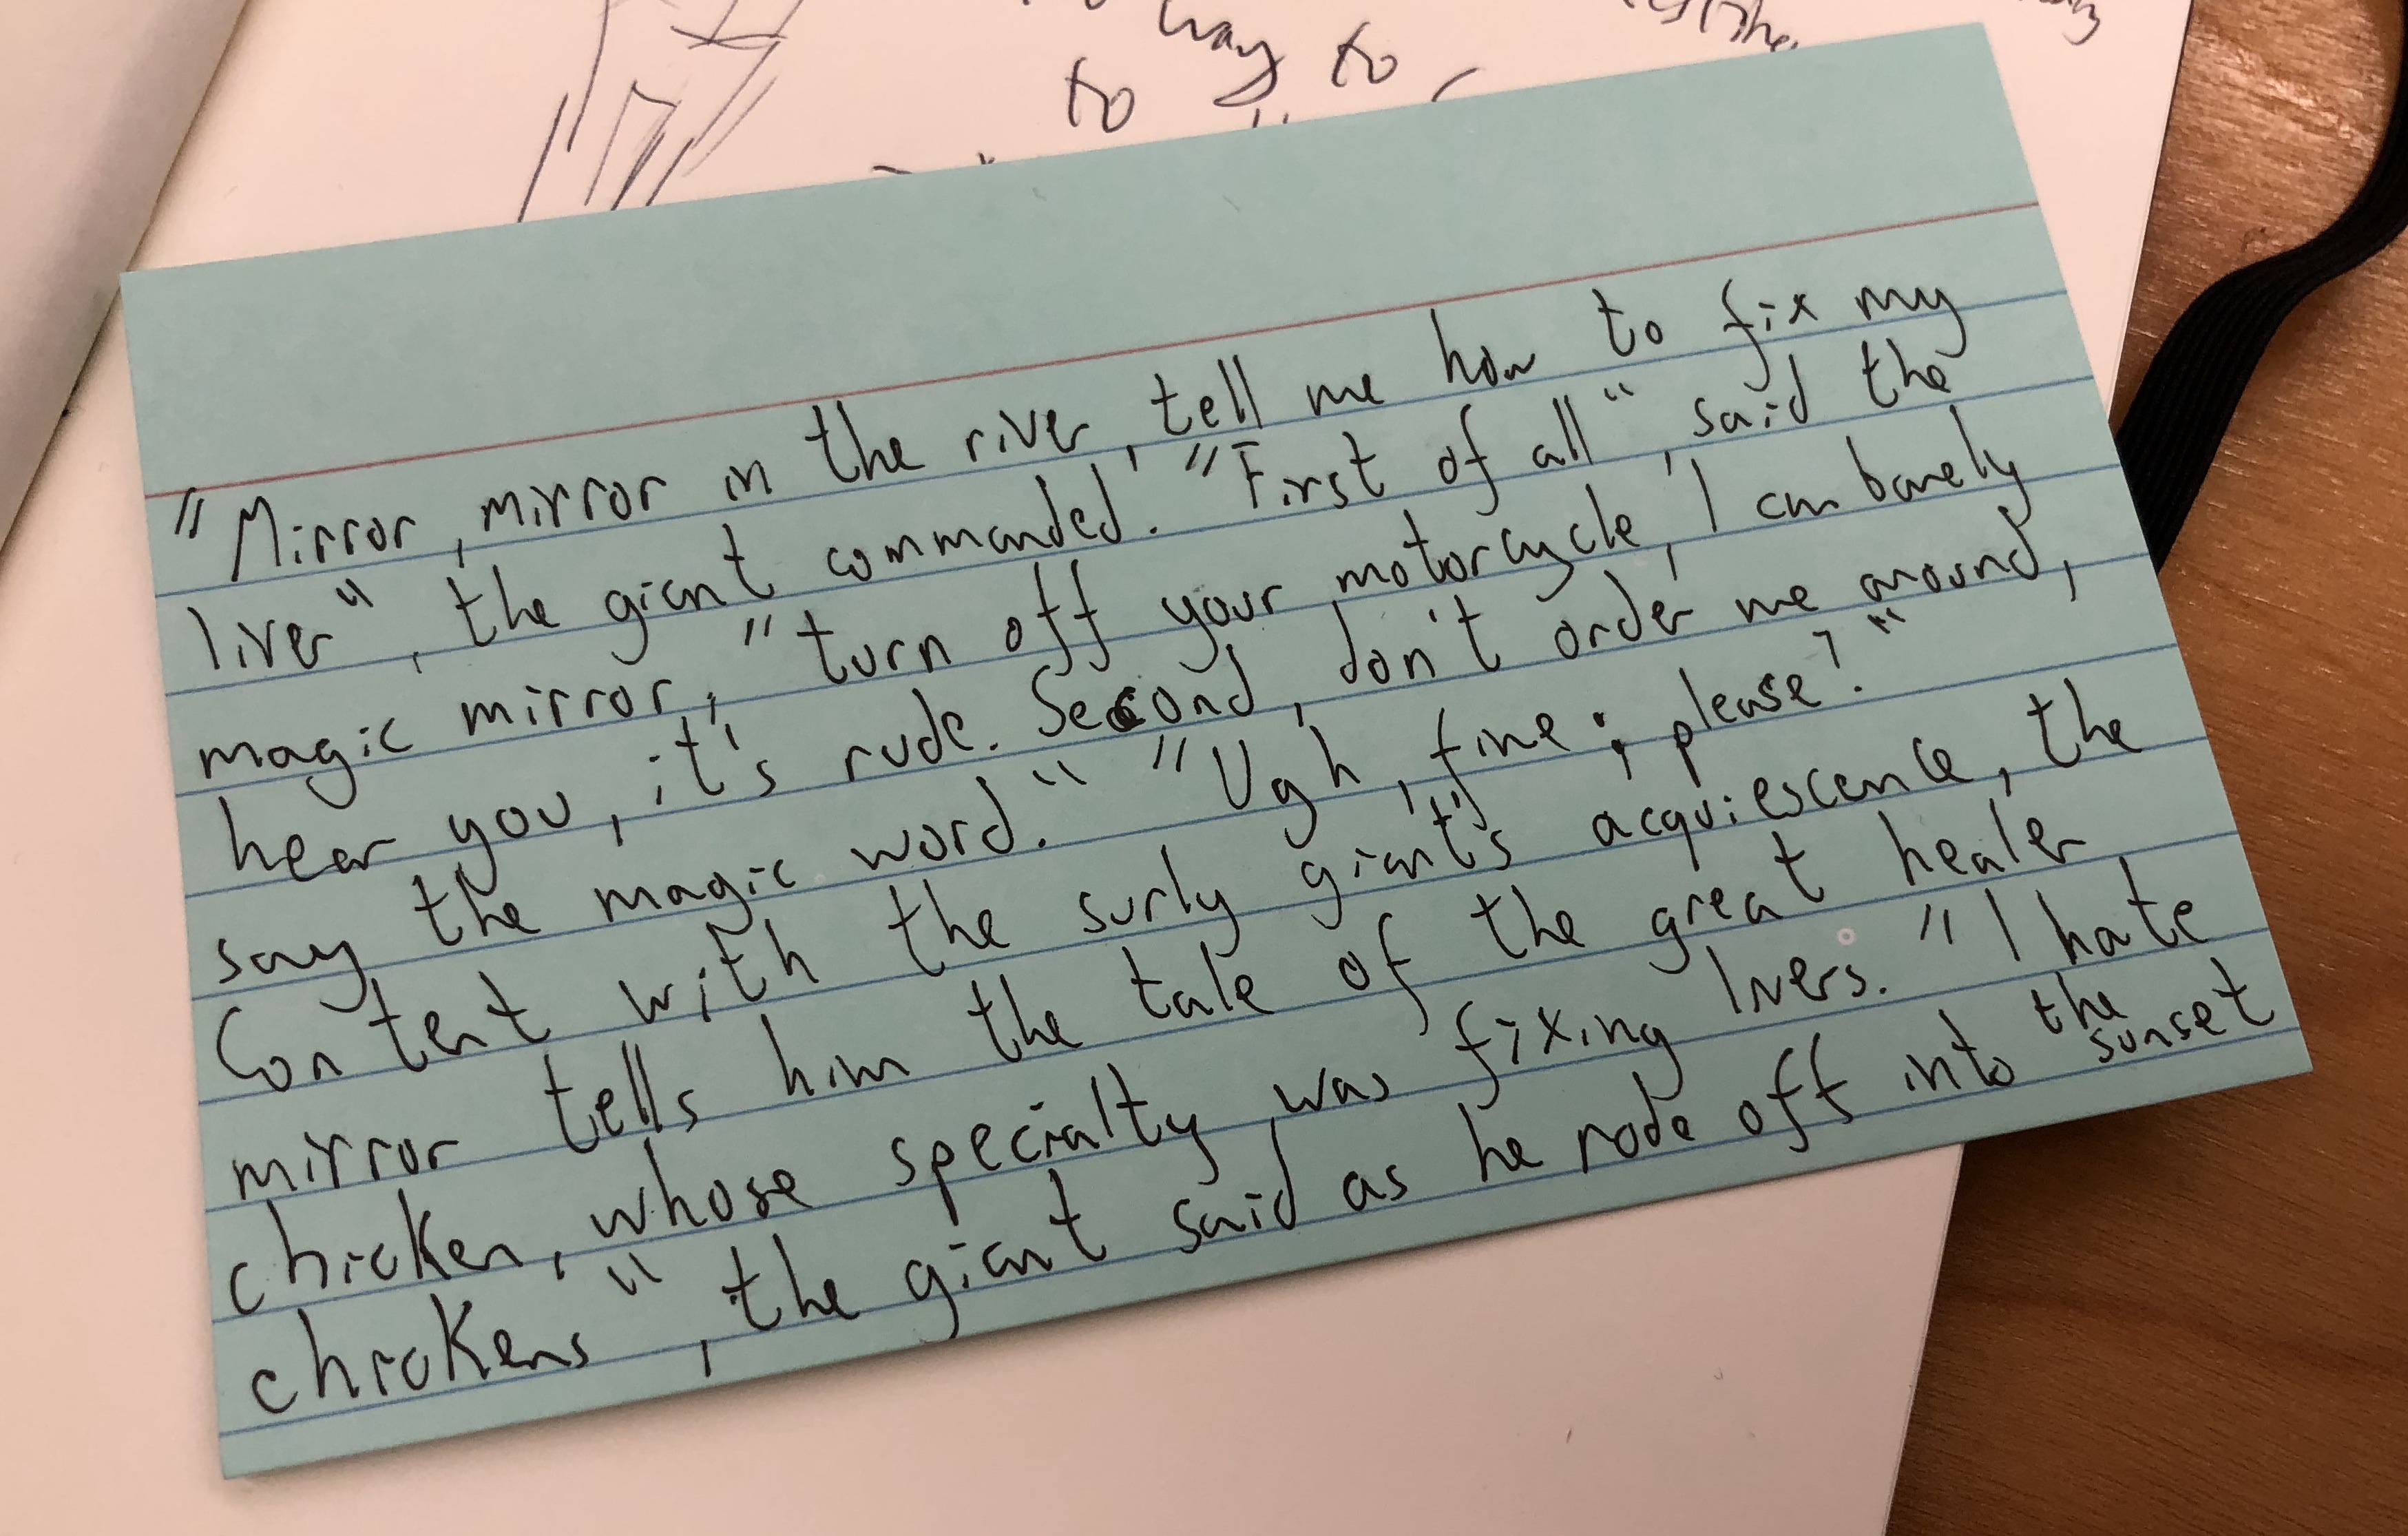 way
to to
"Mirror, mirror in the river, tell me how to fix my
liver", the giant commanded. "First of all", said the
magic mirror, "turn off your motorcycle, I can barely
hear you, it's rude. Second, don't order me around,
say the magic word." "Ugh, fine; please?"
Content with the surly giant's acquiescence, the
mirror tells him the tale of the great healer
chicken, whose specialty was fixing livers. "I hate
chickens", the giant said as he rode off into the sunset